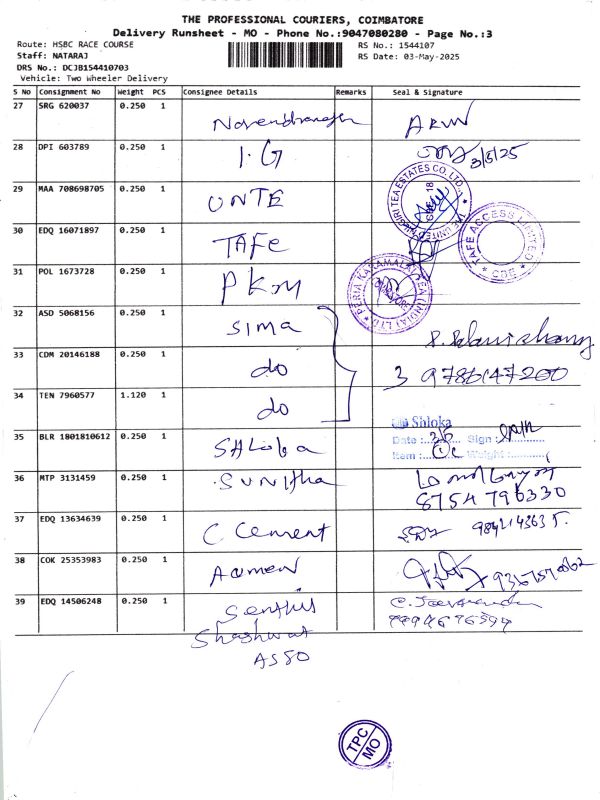 THE PROFESSIONAL COURIERS, COIMBATORE
Delivery Runsheet - MO - Phone No.:9047080280 - Page No.:3
Route: HSBC RACE COURSE
RS No.: 1544107
Staff: NATARAJ
RS Date: 03-May-2025
DRS No.: DCJB154410703
Vehicle: Two Wheeler Delivery
S No Consignment No Weight PCS Consignee Details Remarks Seal & Signature
27 SRG 620037 0.250 1 ARUN
28 DPI 603789 0.250 1 I.G 3/5/25
29 MAA 708698705 0.250 1 UNTE
30 EDQ 16071897 0.250 1 TAFE
TAFE ACCESS LIMITED
31 POL 1673728 0.250 1 PKM
PERIA KARAMALAI TEA (INDIA) LTD
32 ASD 5068156 0.250 1 Sima
33 CDM 20146188 0.250 1 do 3 9786147200
34 TEN 7960577 1.120 1 do
Shloka
Date : Sign :
Item : Weight :
35 BLR 1801810612 0.250 1 SHLoka
36 MTP 3131459 0.250 1 SUNITHA
8754796330
37 EDQ 13634639 0.250 1 C Cement
38 COK 25353983 0.250 1
39 EDQ 14506248 0.250 1 Senthil
Shashwat
ASSO
TPC
MO